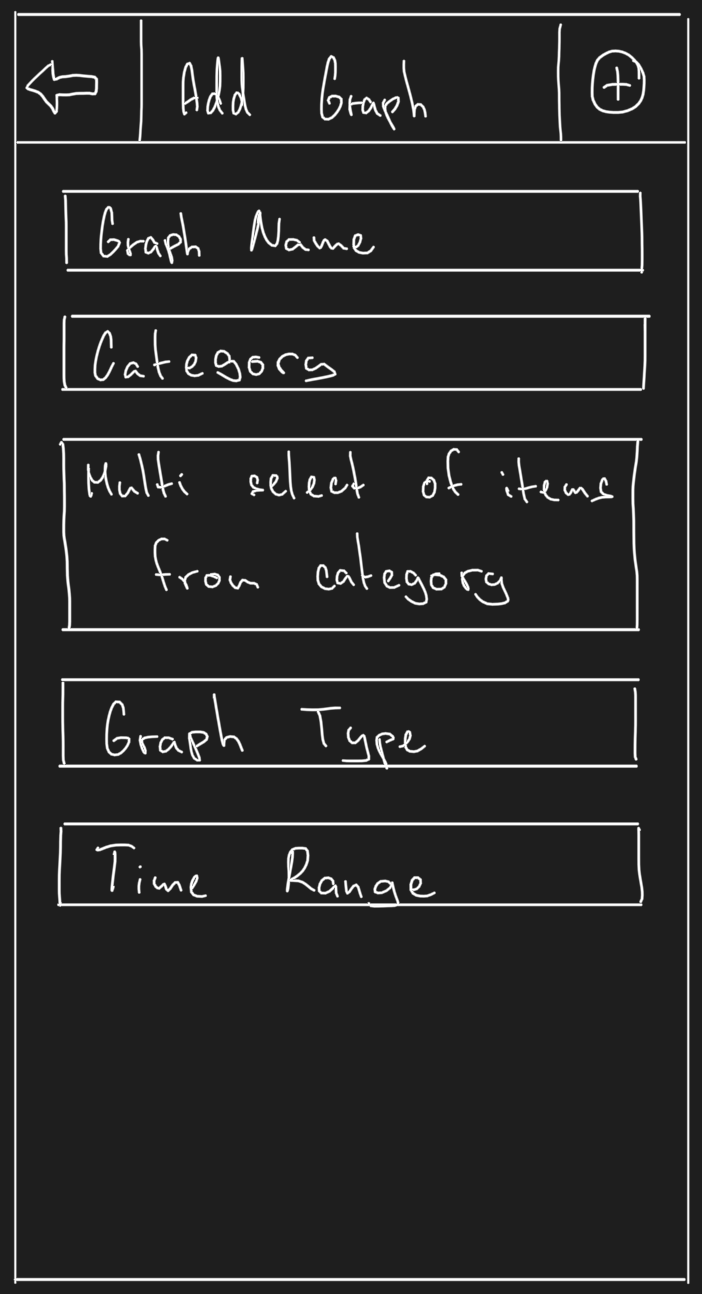 Add Graph
Graph Name
Category
Multi select of items
from category
Graph Type
Time Range